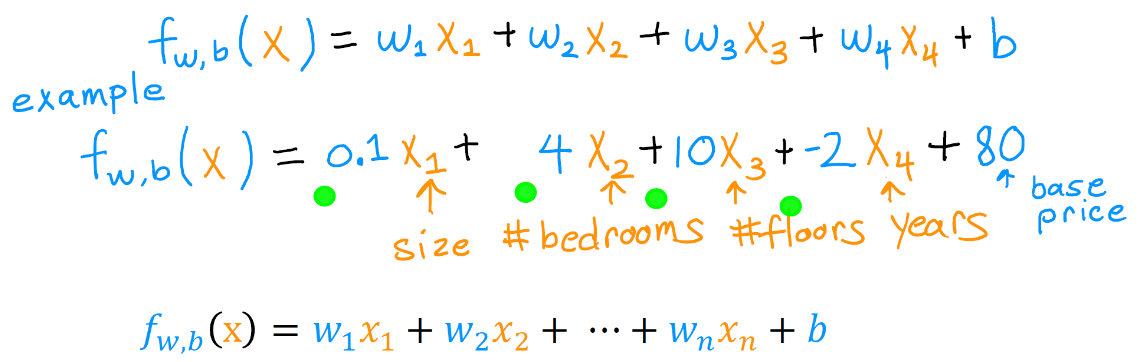 f_{w,b}(x) = w₁x₁ + w₂x₂ + w₃x₃ + w₄x₄ + b
example
f_{w,b}(x) = 0.1x₁ + 4x₂ + 10x₃ + -2x₄ + 80
size #bedrooms #floors years base price
f_{w,b}(x) = w₁x₁ + w₂x₂ + ⋯ + wₙxₙ + b